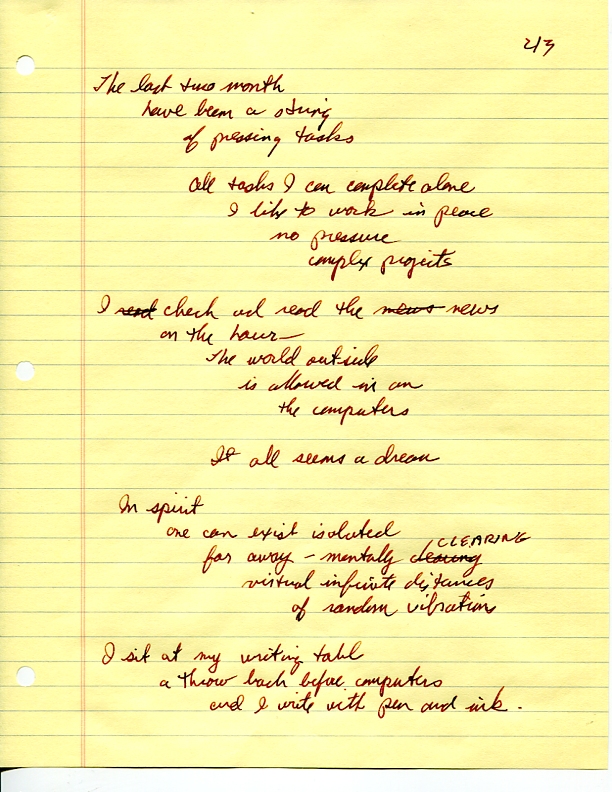 2/3
The last two month
have been a string
of pressing tasks
All tasks I can complete alone
I like to work in peace
no pressure
complex projects
I read check and read the news news
on the hour—
The world outside
is allowed in on
the computers
It all seems a dream
In spirit
one can exist isolated
CLEARING
far away – mentally clearing
virtual infinite distances
of random vibrations
I sit at my writing table
a throw back before computers
and I write with pen and ink.